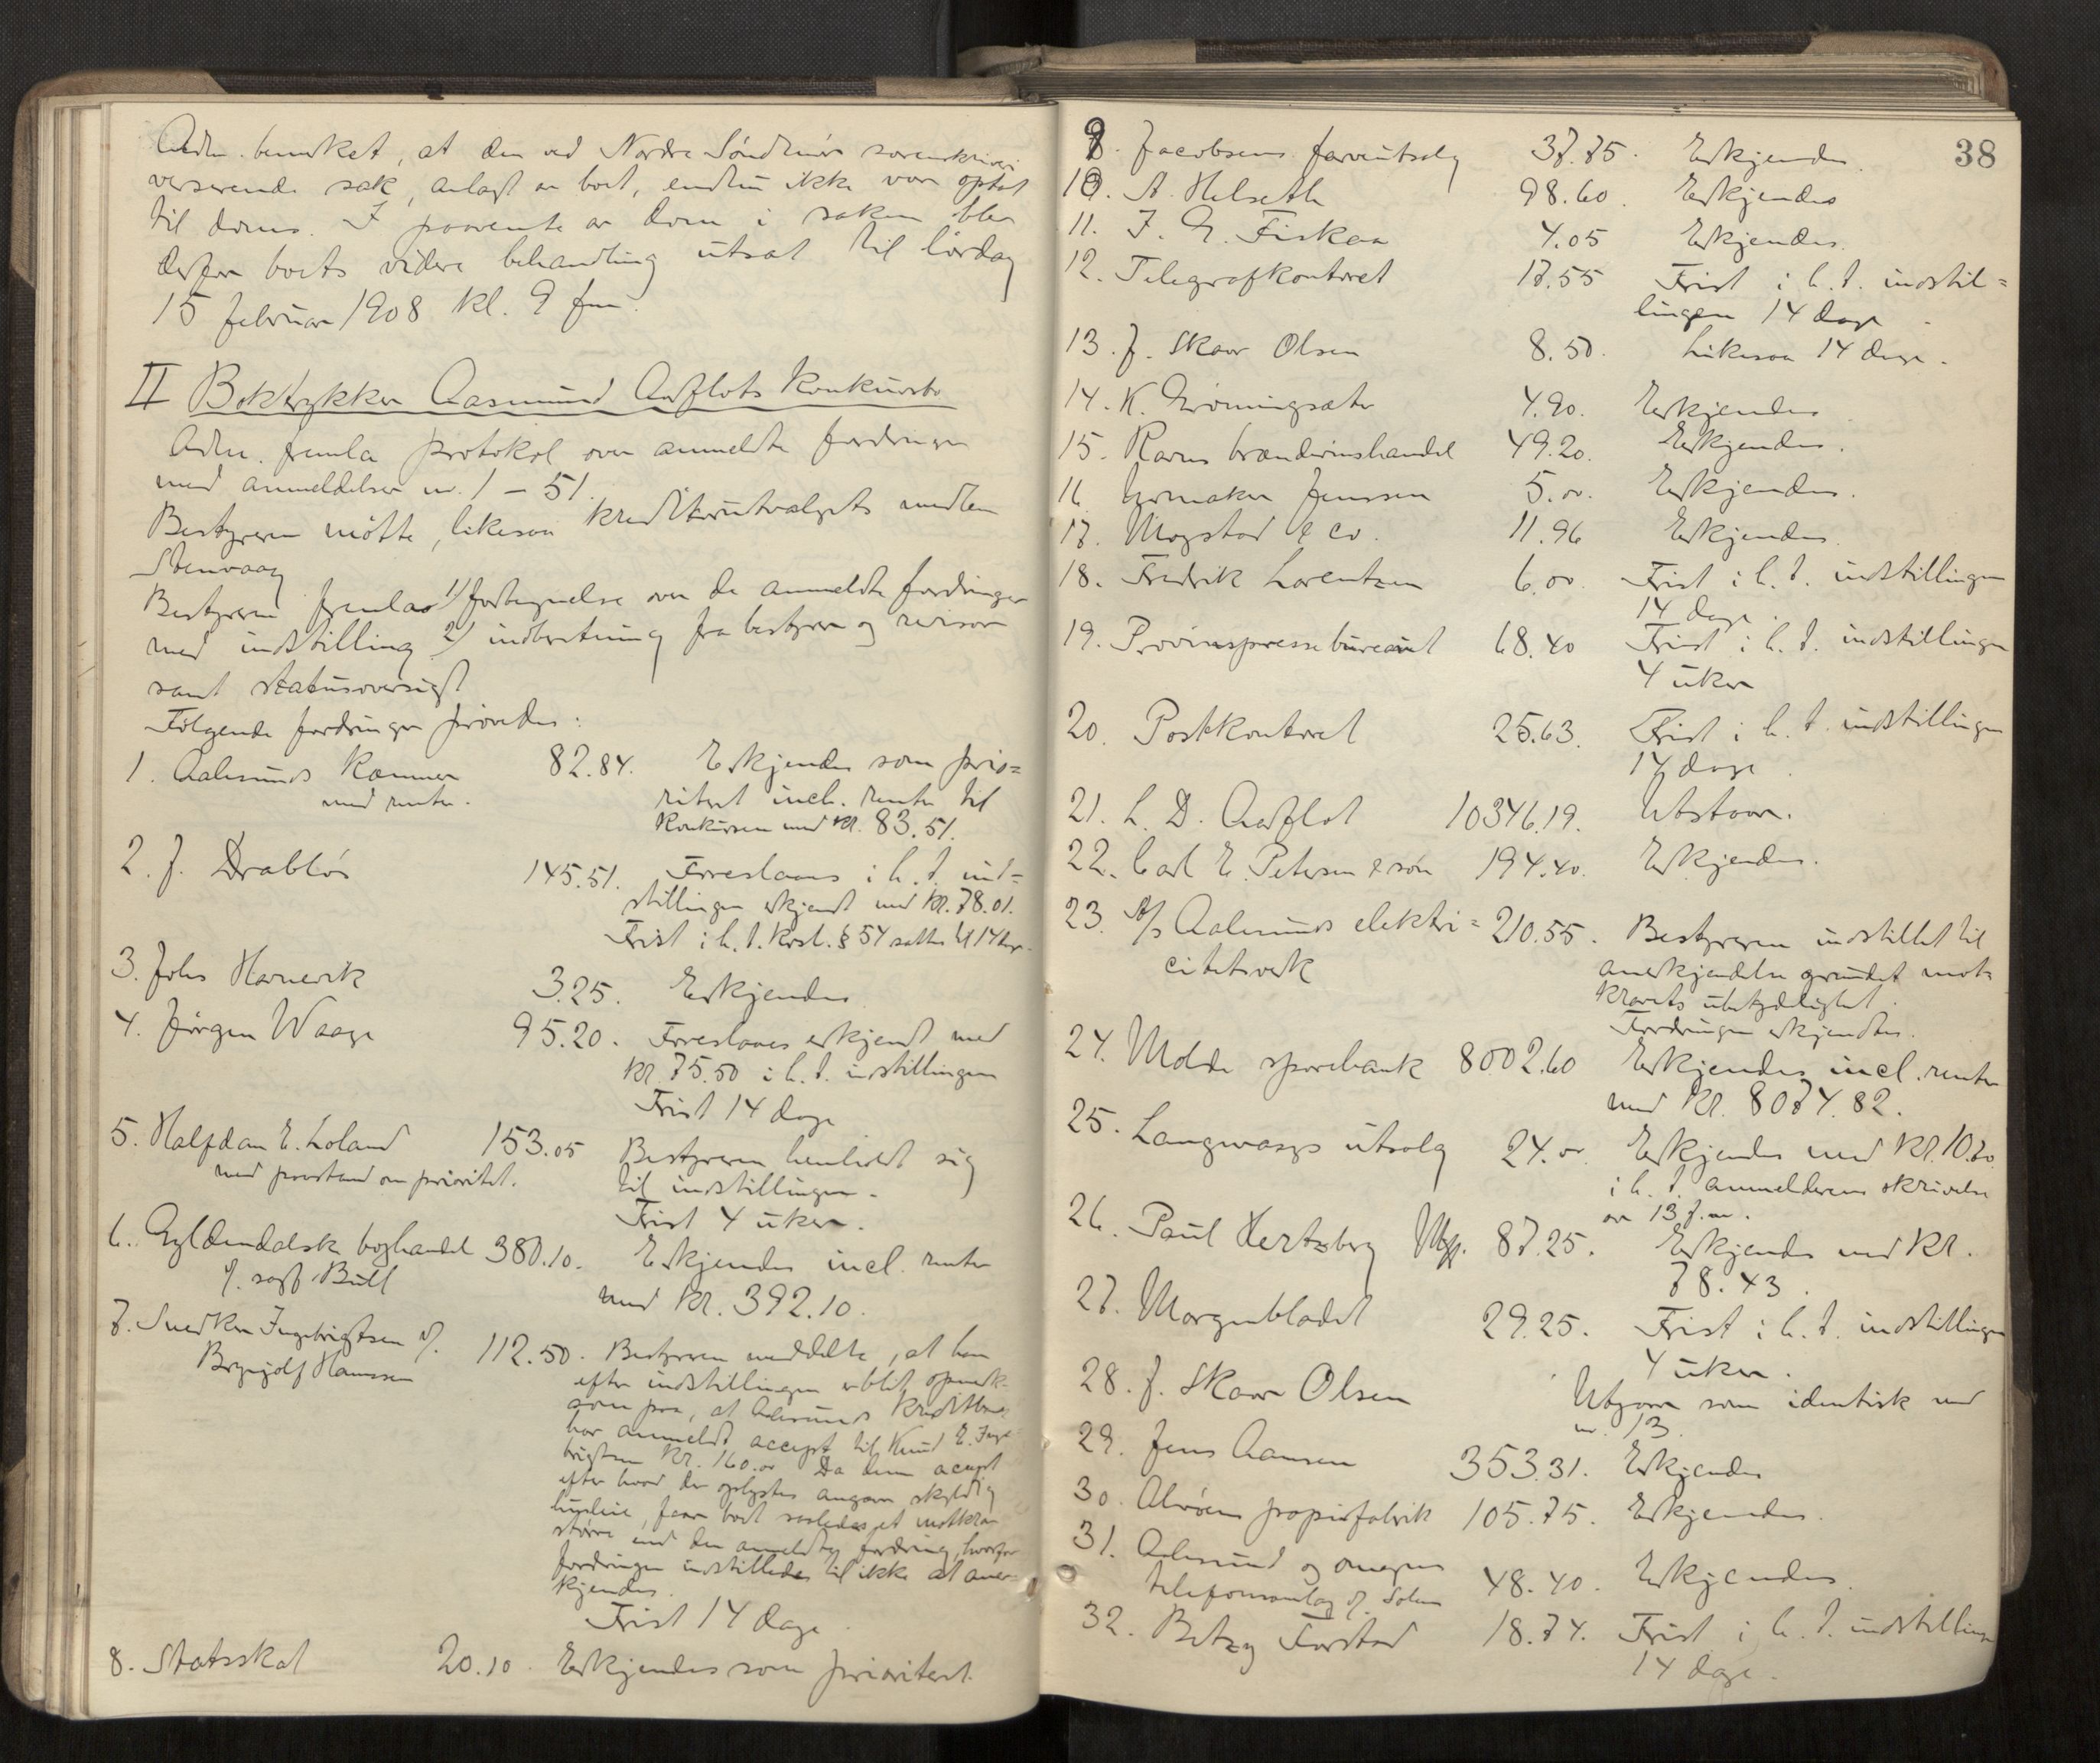 Adm. bemerket, at den ved Nordre Søndmør sorenskriveri
verserende sak, anlagt av boet, endnu ikke var optat
til doms. I paavente av dom i saken blev
derfor boets videre behandling utsat til lørdag
15 februar 1908 kl. 9 fm.
II Boktrykker Aasmund Aaflots konkursbo
Adm. fremla protokol over anmeldte fordringer
med anmeldelser nr. 1 – 51.
Bestyreren møtte, likesaa kreditorutvalgets medlem
Stenvaag
Bestyreren fremla 1) fortegnelse over de anmeldte fordringer
med indstilling 2) indberetning fra bestyrer og revisor
samt statusoversigt
Følgende fordringer prøvedes:
1. Aalesunds Kæmner 82.84. Erkjendes som prio=
med renter. ritert incl. renter til
konkursen med kr. 83.51.
2. J. Drabløs 145.51. Foreslaaes i h. t. ind=
stillingen erkjendt med kr. 78.01.
Frist i h. t. Kosl. § 54 sattes til 14 dage.
3. Johs Harnevik 3.25. Erkjendes
4. Jørgen Waage 95.20. Foreslaaes erkjendt med
kr. 75.50 i h. t. indstillingen
Frist 14 dage
5. Halfdan E. Loland 153.05 Bestyreren henholdt sig
med paastand om prioritet. til indstillingen.
Frist 4 uker.
6. Gyldendalsk boghandel 380.10. Erkjendes incl. renter
v. sagf. Bull med kr. 392.10.
7. Snedker Ingebrigtsen v. 112.50. Bestyreren meddelte, at han
Brynjolf Hanssen efter indstillingen er blit opmerk-
som paa, at Aalesunds Kreditbank
har anmeldt accept til Knud E. Inge-
brigtsen kr. 160.00 Da denne accept
efter hvad der oplystes angaar skyldig
husleie, faar boet saaledes et motkrav
større end den anmeldte fordring, hvorfor
fordringen indstilledes til ikke at aner-
kjendes.
Frist 14 dage
8. Statsskat 20.10. Erkjendes som prioritert.
38
9. Jacobsens farveutsalg 37.75. Erkjendes
10. A. Helseth 98.60. Erkjendes
11. I. G. Fiskaa 4.05 Erkjendes.
12. Telegrafkontoret 17.55 Frist i h. t. indstil=
lingen 14 dage
13. J. Skaar Olsen 8.50. Likesaa 14 dage.
14. K. Grøningsæter 4.90. Erkjendes
15. Ravns brændevinshandel 49.20. Erkjendes.
16. Urmaker Jenssen 5.00. Erkjendes.
17. Mogstad & Co. 11.96 Erkjendes.
18. Fredrik Lorentzen 6.00. Frist i h. t. indstillingen
14 dage.
19. Provinspressebureauet 68.40 Frist i h. t. indstillingen
4 uker
20. Postkontoret 25.63. Frist i h. t. indstillingen
14 dage.
21. L. D. Aaflot 10346.19. Utstaar.
22. Carl E. Petersen & søn 194.40. Erkjendes.
23. A/s Aalesunds elektri= 210.55. Bestyreren indstillet til
citetsverk anerkjendelse grundet mot-
kravets ubetydelighet.
Fordringen erkjendtes.
24. Molde sparebank 8002.60 Erkjendes incl. renter
med kr. 8074.82.
25. Langevaags utsalg 24.00. Erkjendes med kr. 10.20
i h. t. anmelderens skrivelse
av 13 f.m.
26. Paul Hertzberg 87.25. Erkjendes med kr.
78.43.
27. Morgenbladet 29.25. Frist i h. t. indstillingen
4 uker.
28. J. Skaar Olsen Utgaar som identisk med
nr. 13.
29. Jens Aamsen 353.31. Erkjendes
30. Alvøens papirfabrik 105.75. Erkjendes.
31. Aalesund og omegns
telefonsamlag v. Solem 48.40. Erkjendes.
32. Betzy Farstad 18.74. Frist i h. t. indstillingen
14 dage.